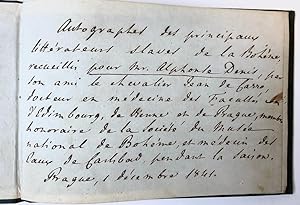 Autographes des principaux
littérateurs slaves de la Bohême,
recueillis pour Mr. Alphonse Denis, par
son ami le chevalier Jean de Carro
docteur en médecine des facultés
d'Edimbourg, de Vienne et de Prague, membre
honoraire de la Société du Musée
national de Bohême, et médecin des
Eaux de Carlsbad, pendant la saison.
Prague, 1 décembre 1841.